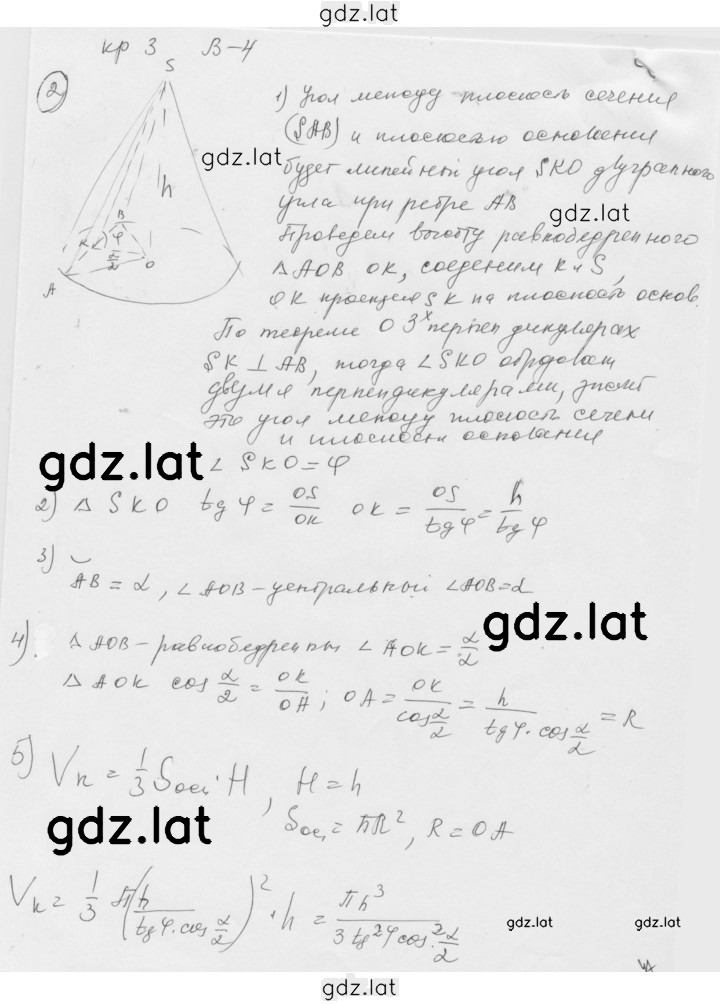 gdz.lat
кр 3 В-4
2
S
h
B
φ
K
α/2
O
A
1) Угол между плоскость сечения
(SAB) и плоскостью основания
gdz.lat
будет линейный угол SKO двугранного
угла при ребре AB
gdz.lat
Проведем высоту равнобедренного
△ AOB OK, соеденим K и S,
OK проекция SK на плоскость основ.
По теореме О 3х перпендикулярах
SK ⊥ AB, тогда ∠SKO образован
двумя перпендикулярами, значит
это угол между плоскость сечени
и плоскости основания
gdz.lat
∠ SKO = φ
2) △ SKO tg φ = OS/OK OK = OS/tg φ = h/tg φ
3) ◡AB = α, ∠AOB – центральный ∠AOB = α
gdz.lat
4) △ AOB – равнобедренный ∠ AOK = α/2
△ AOK cos α/2 = OK/OA; OA = OK/cos α/2 = h/(tg φ · cos α/2) = R
5) Vк = 1/3 Sосн · H, H = h
gdz.lat
Sосн = πR², R = OA
Vк = 1/3 π (h/(tg φ · cos α/2))² · h = πh³/(3 tg²φ cos² α/2)
gdz.lat
gdz.lat
gdz.lat